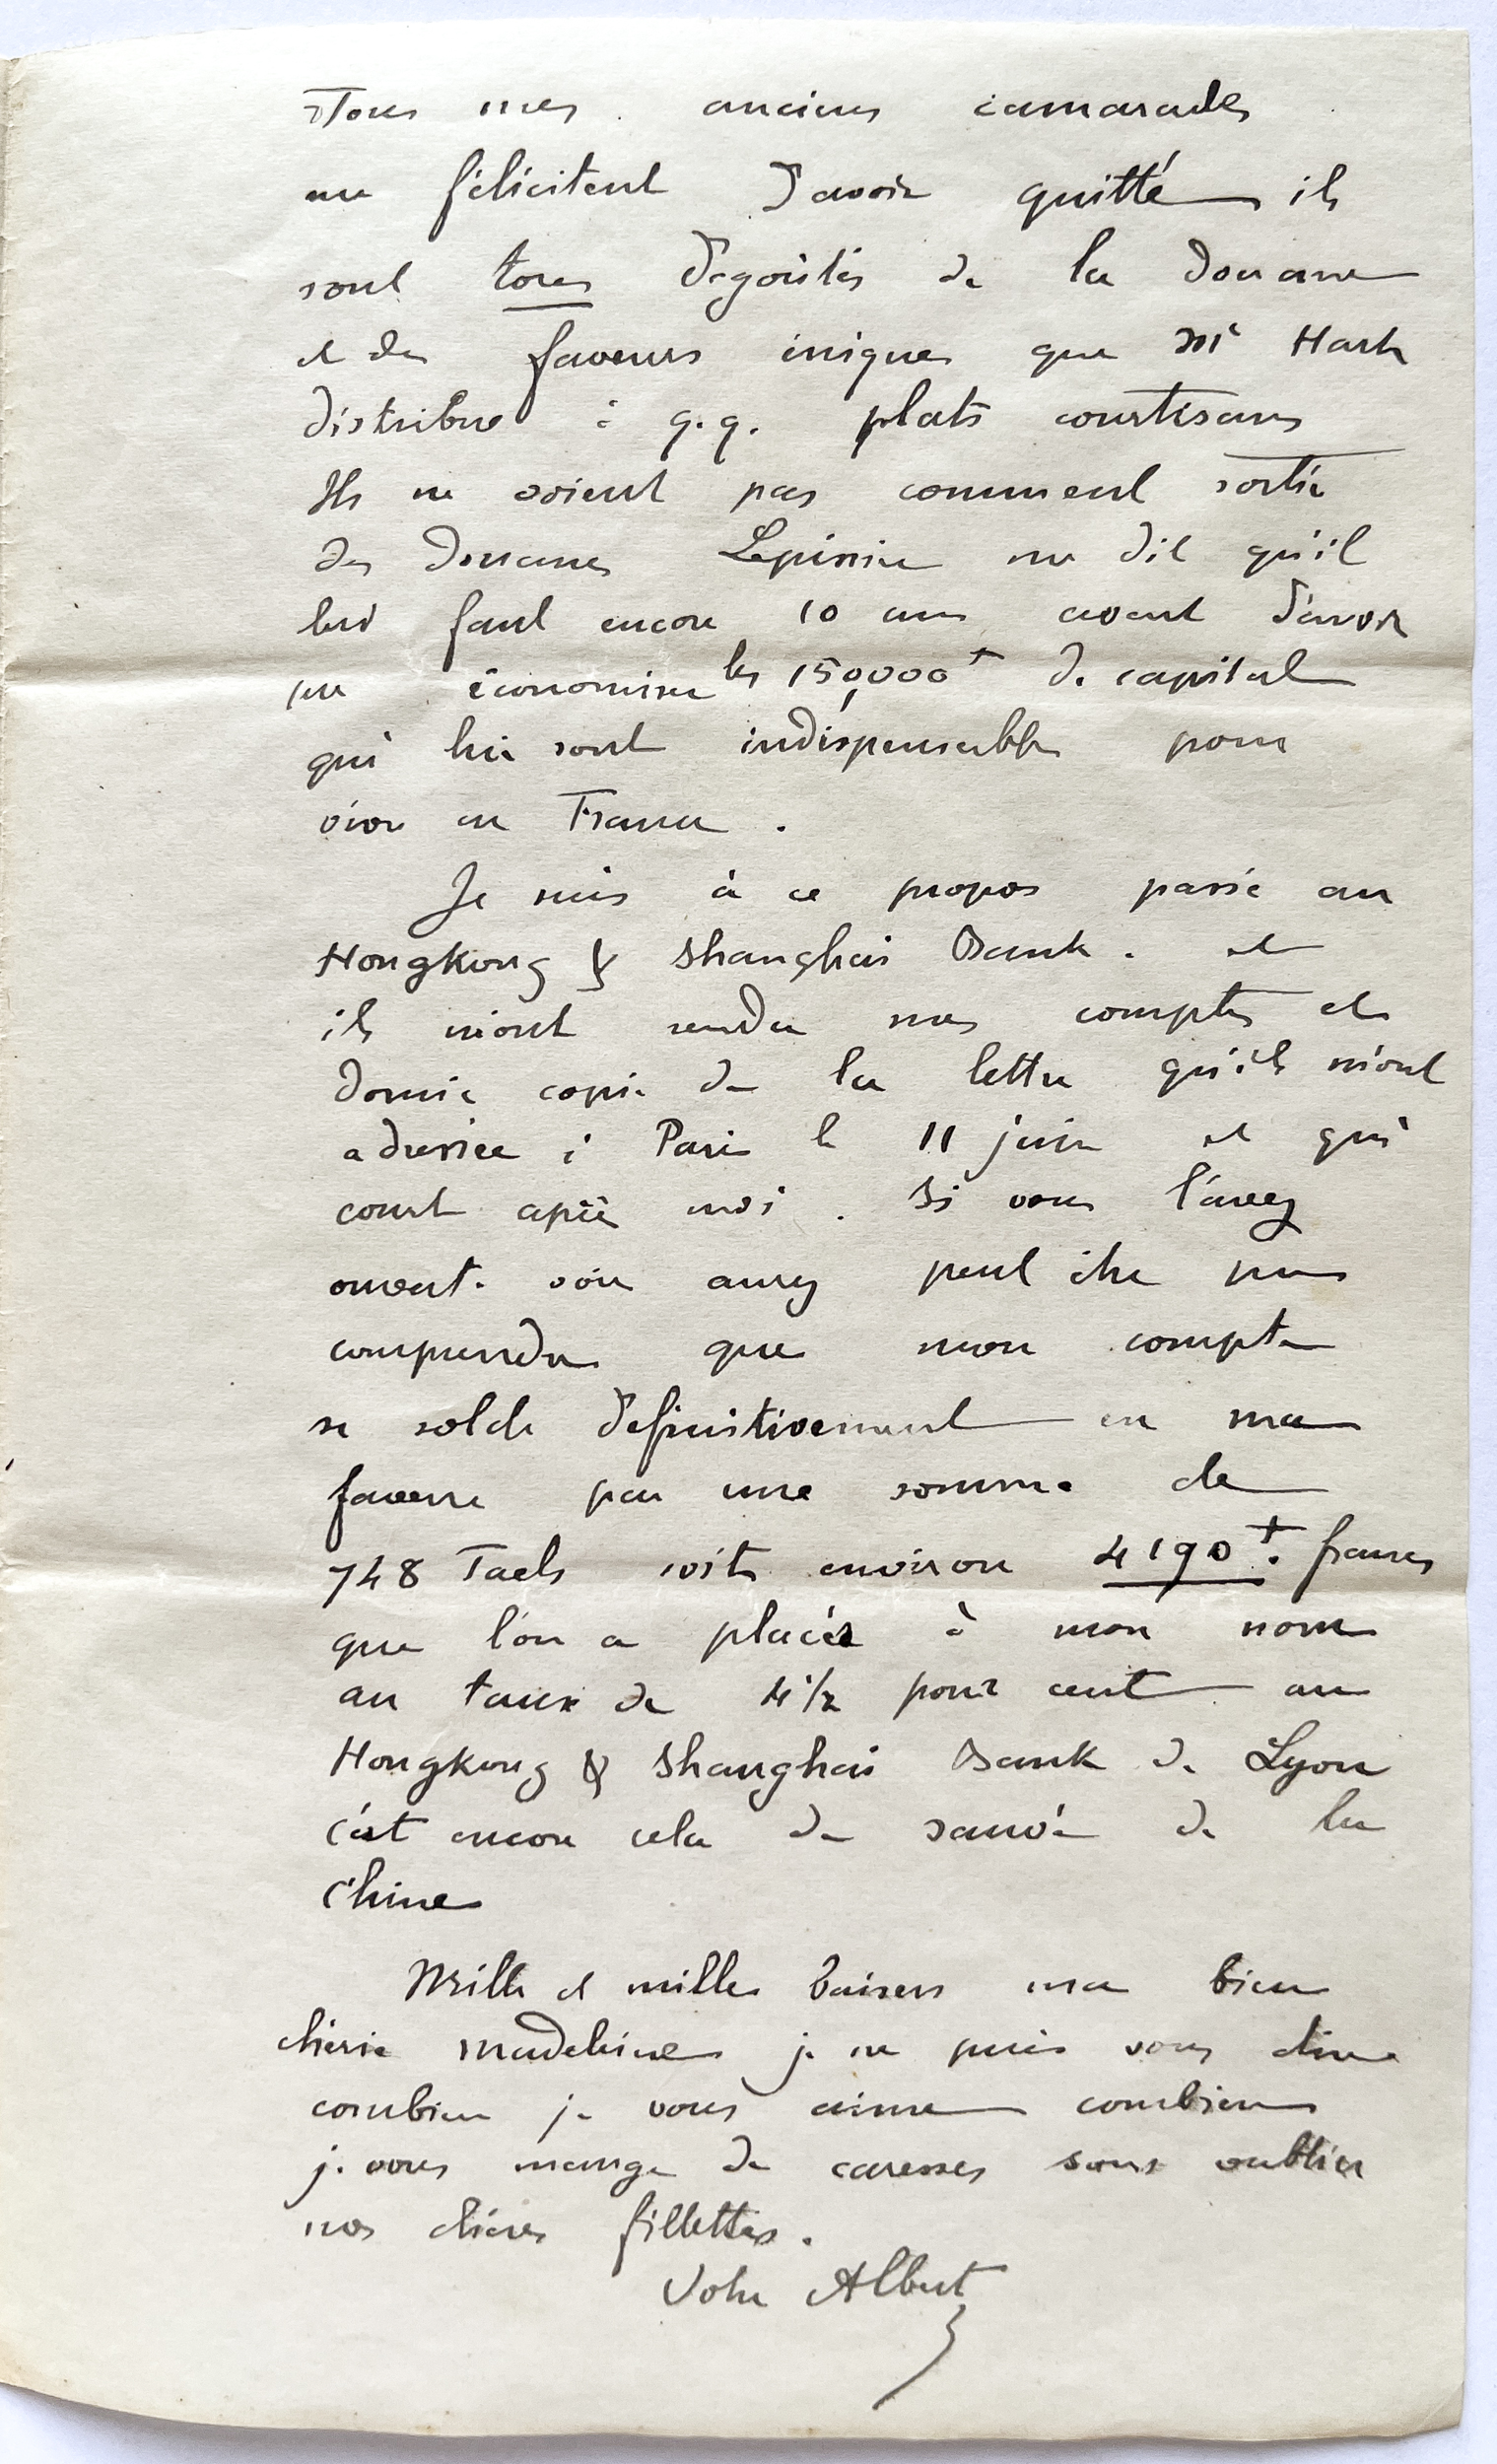 Tous mes anciens camarades
me félicitent d'avoir quitté ils
sont tous dégoutés de la Douane
et des faveurs iniques que Mr Hart
distribue à q.q. plats courtisans
Ils ne voient pas comment sortir
des Douanes Lépissier me dit qu'il
lui faut encore 10 ans avant d'avoir
pu économiser les 150,000 f de capital
qui lui sont indispensables pour
vivre en France.
Je suis à ce propos passé au
Hongkong & Shanghai Bank. et
ils m'ont rendu mes comptes et
donné copie de la lettre qu'ils m'ont
adressée à Paris le 11 juin et qui
court après moi. Si vous l'avez
ouvert. vous aurez peut être pu
comprendre que mon compte
se solde définitivement en ma
faveur par une somme de
748 Taels soit environ 4190 f. francs
que l'on a placés à mon nom
au taux de 4 1/2 pour cent au
Hongkong & Shanghai Bank de Lyon
c'est encore cela de sauvé de la
Chine
Mille et mille baisers ma bien
chérie Madeleine je ne puis vous dire
combien je vous aime combien
je vous mange de caresses sans oublier
nos chères fillettes.
Votre Albert